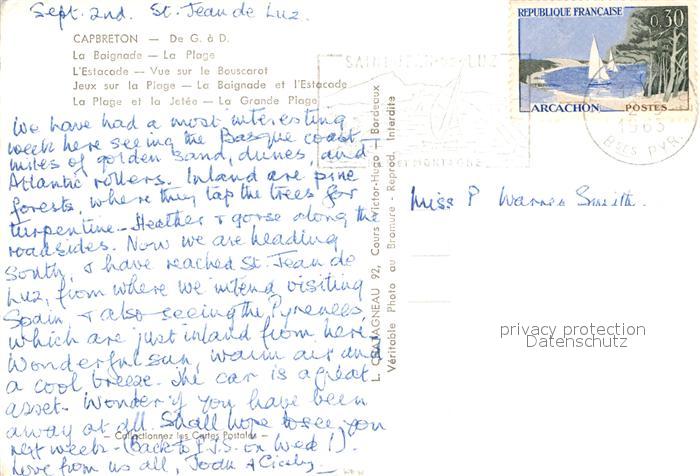 Sept. 2nd. St. Jean de Luz.
CAPBRETON — De G. à D.
La Baignade — La Plage
L'Estacade — Vue sur le Bouscarot
Jeux sur la Plage — La Baignade et l'Estacade
La Plage et la Jetée — La Grande Plage
We have had a most interesting
week here seeing the Basque coast
miles of golden sand, dunes, and
Atlantic rollers. Inland are pine
forests, where they tap the trees for
turpentine - Heather & gorse along the
roadsides. Now we are heading
South, & have reached St. Jean de
Luz, from where we intend visiting
Spain & also seeing the Pyrenees,
which are just inland from here.
Wonderful sun, warm air and
a cool breeze. The car is a great
asset. Wonder if you have been
away at all. Shall hope to see you
next week - (Back to on Wed !).
Love from us all,
– Collectionnez les Cartes Postales –
L. CHATAGNEAU 92, Cours Victor-Hugo — Bordeaux
Véritable Photo au Bromure - Reprod. Interdite
REPUBLIQUE FRANCAISE
0,30
ARCACHON POSTES
SAINT-JEAN-DE-LUZ
MONTAGNE
1963
Bses PYR.
Miss P Warren Smith.
privacy protection
Datenschutz